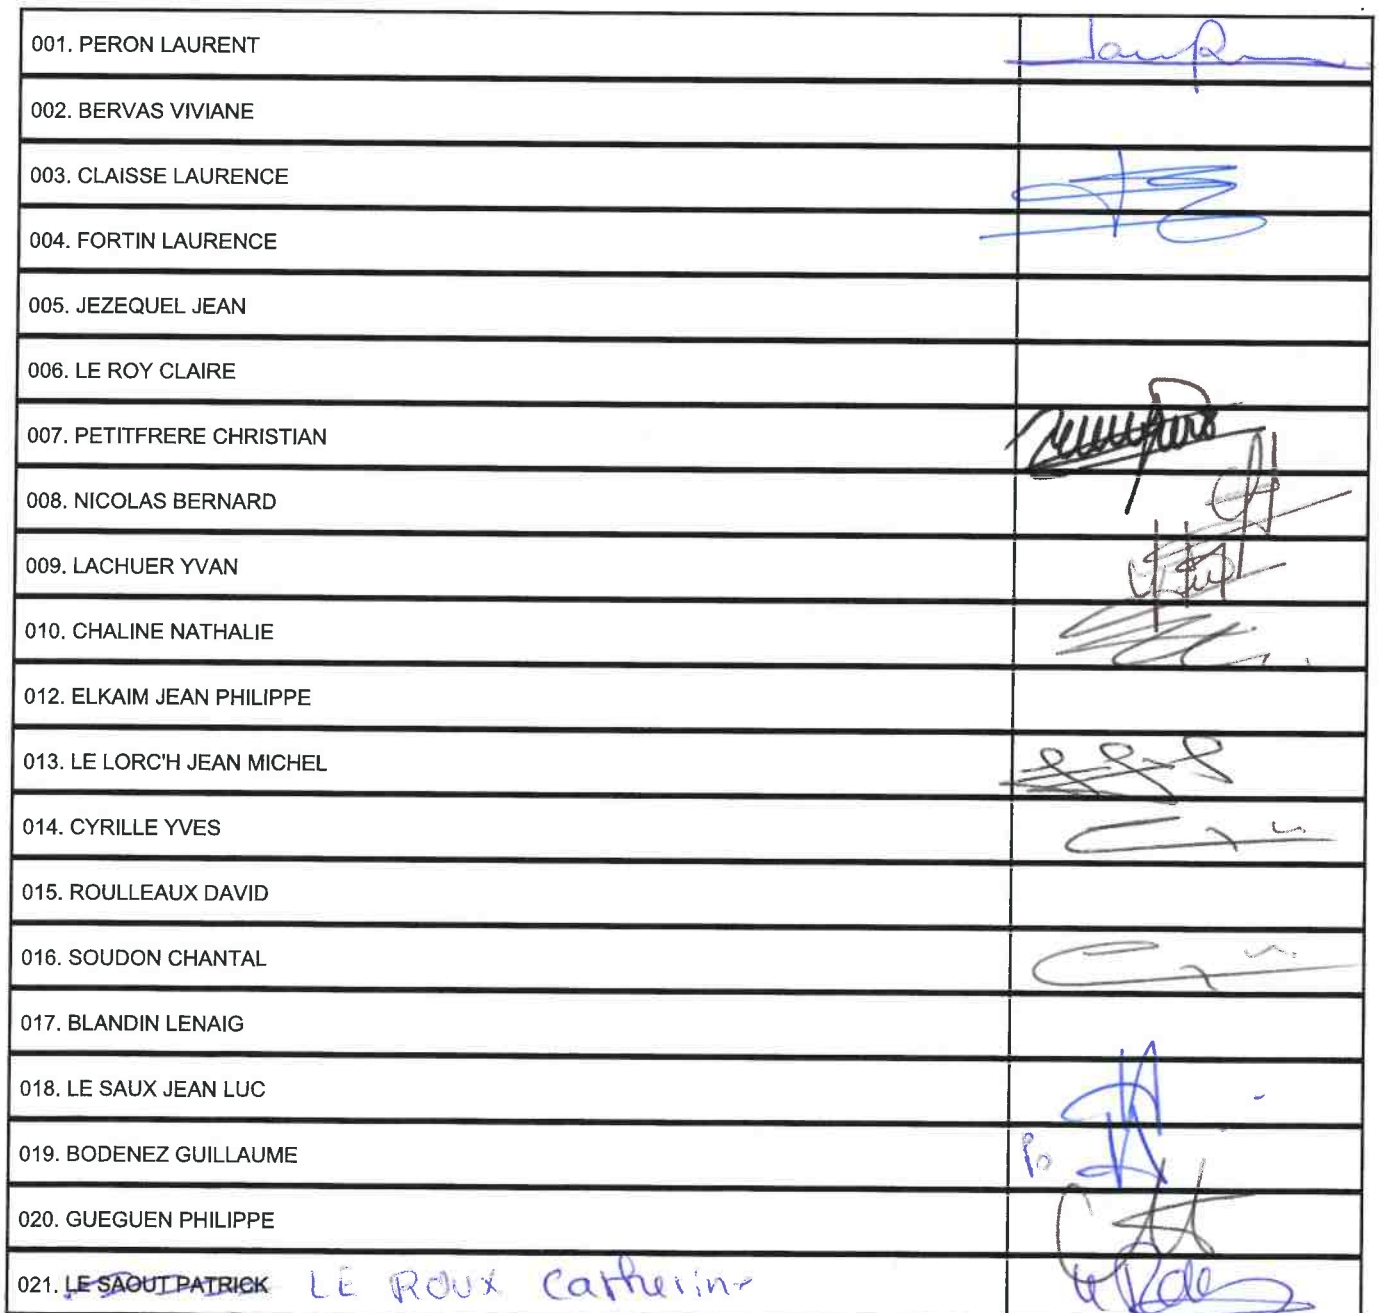 001. PERON LAURENT
002. BERVAS VIVIANE
003. CLAISSE LAURENCE
004. FORTIN LAURENCE
005. JEZEQUEL JEAN
006. LE ROY CLAIRE
007. PETITFRERE CHRISTIAN
008. NICOLAS BERNARD
009. LACHUER YVAN
010. CHALINE NATHALIE
012. ELKAIM JEAN PHILIPPE
013. LE LORC'H JEAN MICHEL
014. CYRILLE YVES
015. ROULLEAUX DAVID
016. SOUDON CHANTAL
017. BLANDIN LENAIG
018. LE SAUX JEAN LUC
019. BODENEZ GUILLAUME Po
020. GUEGUEN PHILIPPE
021. LE SAOUT PATRICK LE ROUX Catherine